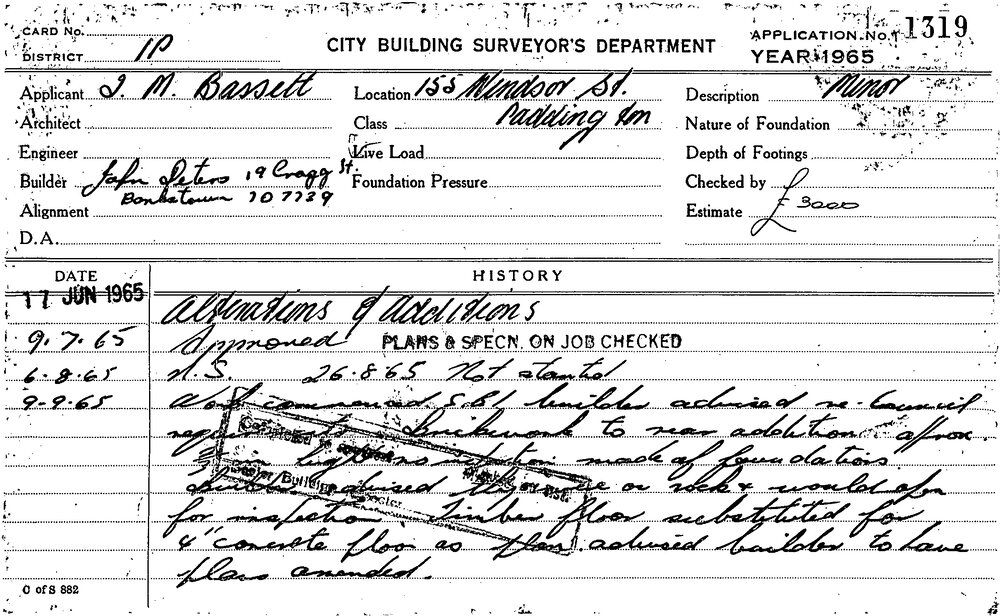 CARD No.
CITY BUILDING SURVEYOR'S DEPARTMENT
APPLICATION. No. 1319
DISTRICT 1P
YEAR 1965
Applicant J. M. Bassett
Location 155 Windsor St.
Description Minor
Architect
Class Paddington
Nature of Foundation
Engineer
Live Load
Depth of Footings
Builder John Peters 19 Cragg St.
Foundation Pressure
Checked by
Bankstown 70 7739
Alignment
Estimate £ 3000
D.A.
DATE HISTORY
17 JUN 1965 Alterations & Additions
9.7.65 Approved PLANS & SPECN. ON JOB CHECKED
6.8.65 N.S. 26.8.65 Not started
9.9.65 Work commenced builder advised re. Council
Brickwork to rear addition approx.
high no inspection made of foundations
advised or rock & would open
for inspection. Timber floor substituted for
4" concrete floor as plan. advised builder to have
plans amended.
Completed
Marked off list.
Senior Building Inspector
C of S 882